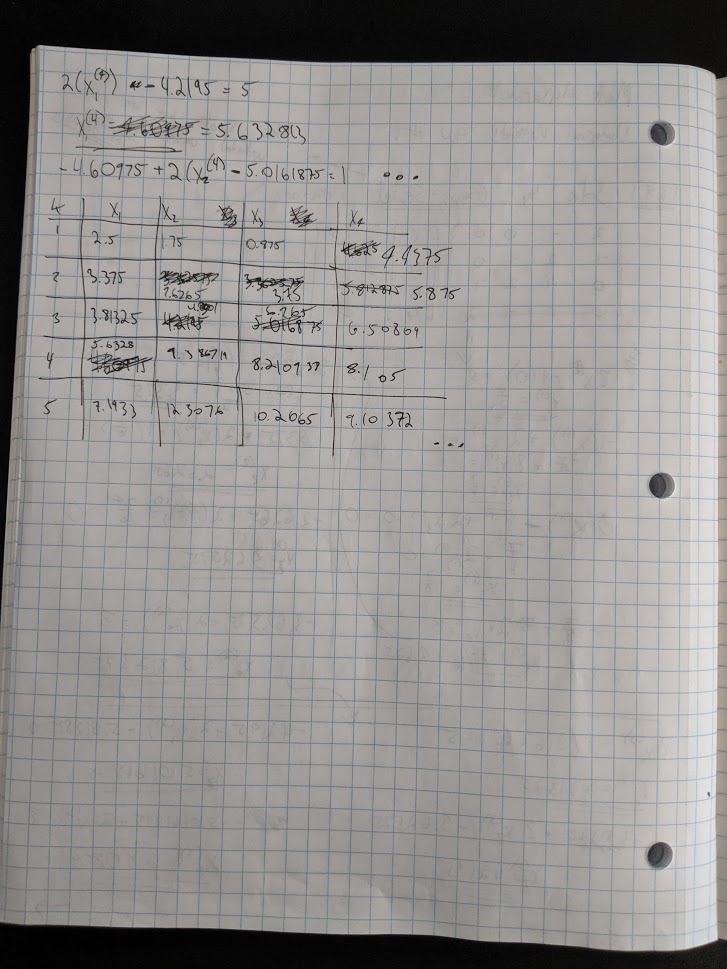 2(x₁⁽⁴⁾) - 4.2195 = 5
x₁⁽⁴⁾ = 5.632813
-4.60975 + 2(x₂⁽⁴⁾ - 5.0161875 = 1 ...
x₁ x₂ x₃ x₄
1 2.5 1.75 0.875 4.4375
2 3.375 3.75 5.812875 5.875
3 3.81325 6.265 6.50809
4 5.6328 8.210937 8.1 05
5 7.1933 12.3076 10.2065 9.10372
...